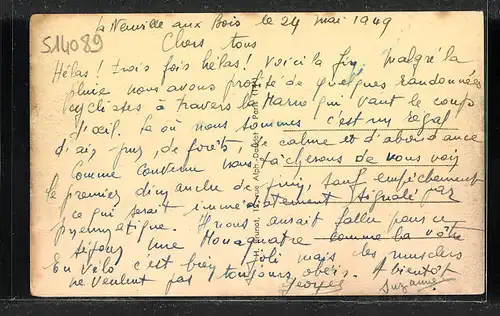 514089
La Neuville aux Bois le 24 mai 1949
Chers tous
Hélas! trois fois hélas! Voici la fin. Malgré la
pluie nous avons profité de quelques randonnées
cyclistes à travers la Marne qui vaut le coup
d'œil. Là où nous sommes c'est un régal
d'air pur, de forêts, de calme et d'abondance
Comme convenu nous tâcherons de vous voir
le premier dimanche de juin, sauf empêchement
ce qui serait immédiatement signalé par
pneumatique. Il nous aurait fallu pour ce
une Monaquatre comme la vôtre
En vélo c'est bien joli mais les muscles
ne veulent pas toujours obéir. A bientôt
Georges Suzanne